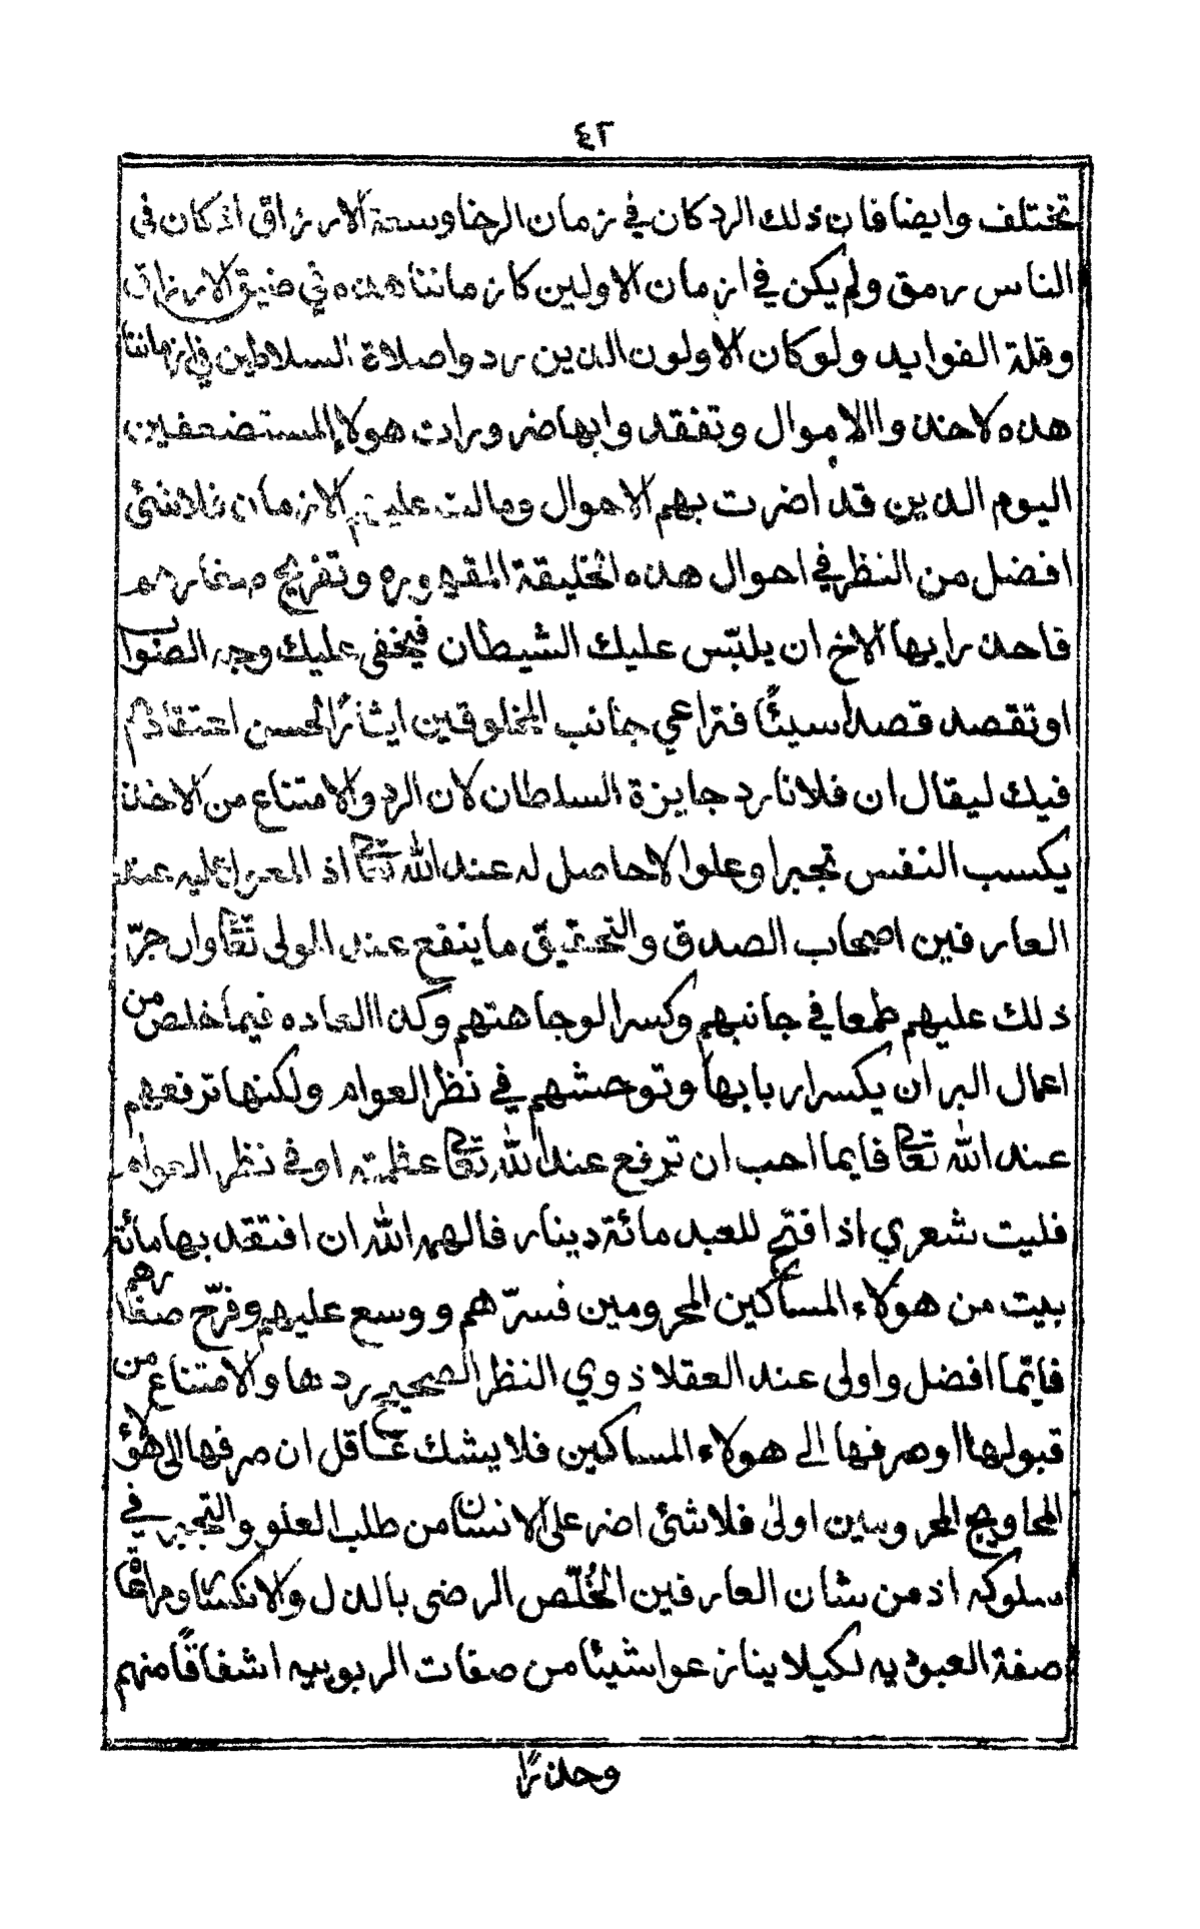 ٤٢
تختلف وايضا فان ذلك الرد كان في زمان الرخا وسعة الارزاق اذ كان في
الناس رمق ولم يكن في ازمان الاولين كازماننا هذه في ضيق الارزاق
وقلة الفوايد ولو كان الاولون الذين ردوا صلاة السلاطين في ازماننا
هذه لاخذوا الاموال وتفقدوا بها ضرورات هولاء المستضعفين
اليوم الذين قد اضرت بهم الاحوال ومالت عليهم الازمان فلا شئ
افضل من النظر في احوال هذه الخليقة المقهوره وتفريح صغارهم
فاحذر ايها الاخ ان يلبّس عليك الشيطان فيخفى عليك وجه الصواب
او تقصد قصدا سيئًا فتراعي جانب المخلوقين ايثارًا لحسن اعتقادهم
فيك ليقال ان فلانا رد جايزة السلطان لان الرد والامتناع من الاخذ
يكسب النفس تجبرا وعلوا لا حاصل له عند الله تعالى اذ المعرا عليه عند
العارفين اصحاب الصدق والتحقيق ما ينفع عند المولى تعالى وان جرّ
ذلك عليهم طمعا في جانبهم وكسرا لوجاهتهم وكذا العاده فيما خلص من
اعمال البر ان يكسر اربابها وتوحشهم في نظر العوام ولكنها ترفعهم
عند الله تعالى فايما احب ان ترفع عند الله تعالى عظيمته او في نظر العوام
فليت شعري اذا فتح للعبد مائة دينار فالهمه الله ان افتقد بها مائة
بيت من هولاء المساكين المحرومين فسرّهم ووسع عليهم وفرّح صغارهم
فايّما افضل واولى عند العقلا ذوي النظر الصحيح ردها والامتناع من
قبولها او صرفها الى هولاء المساكين فلا يشك عاقل ان صرفها الى هؤلا
المحاويج المحرومين اولى فلا شئ اضر على الانسان من طلب العلو والتجبر في
سلوكه اذ من شان العارفين الخُلّص الرضى بالذل والانكسار ومرافقة
صفة العبوديه لكيلا ينازعوا شيئًا من صفات الربوبيه اشفاقًا منهم
وحذرًا